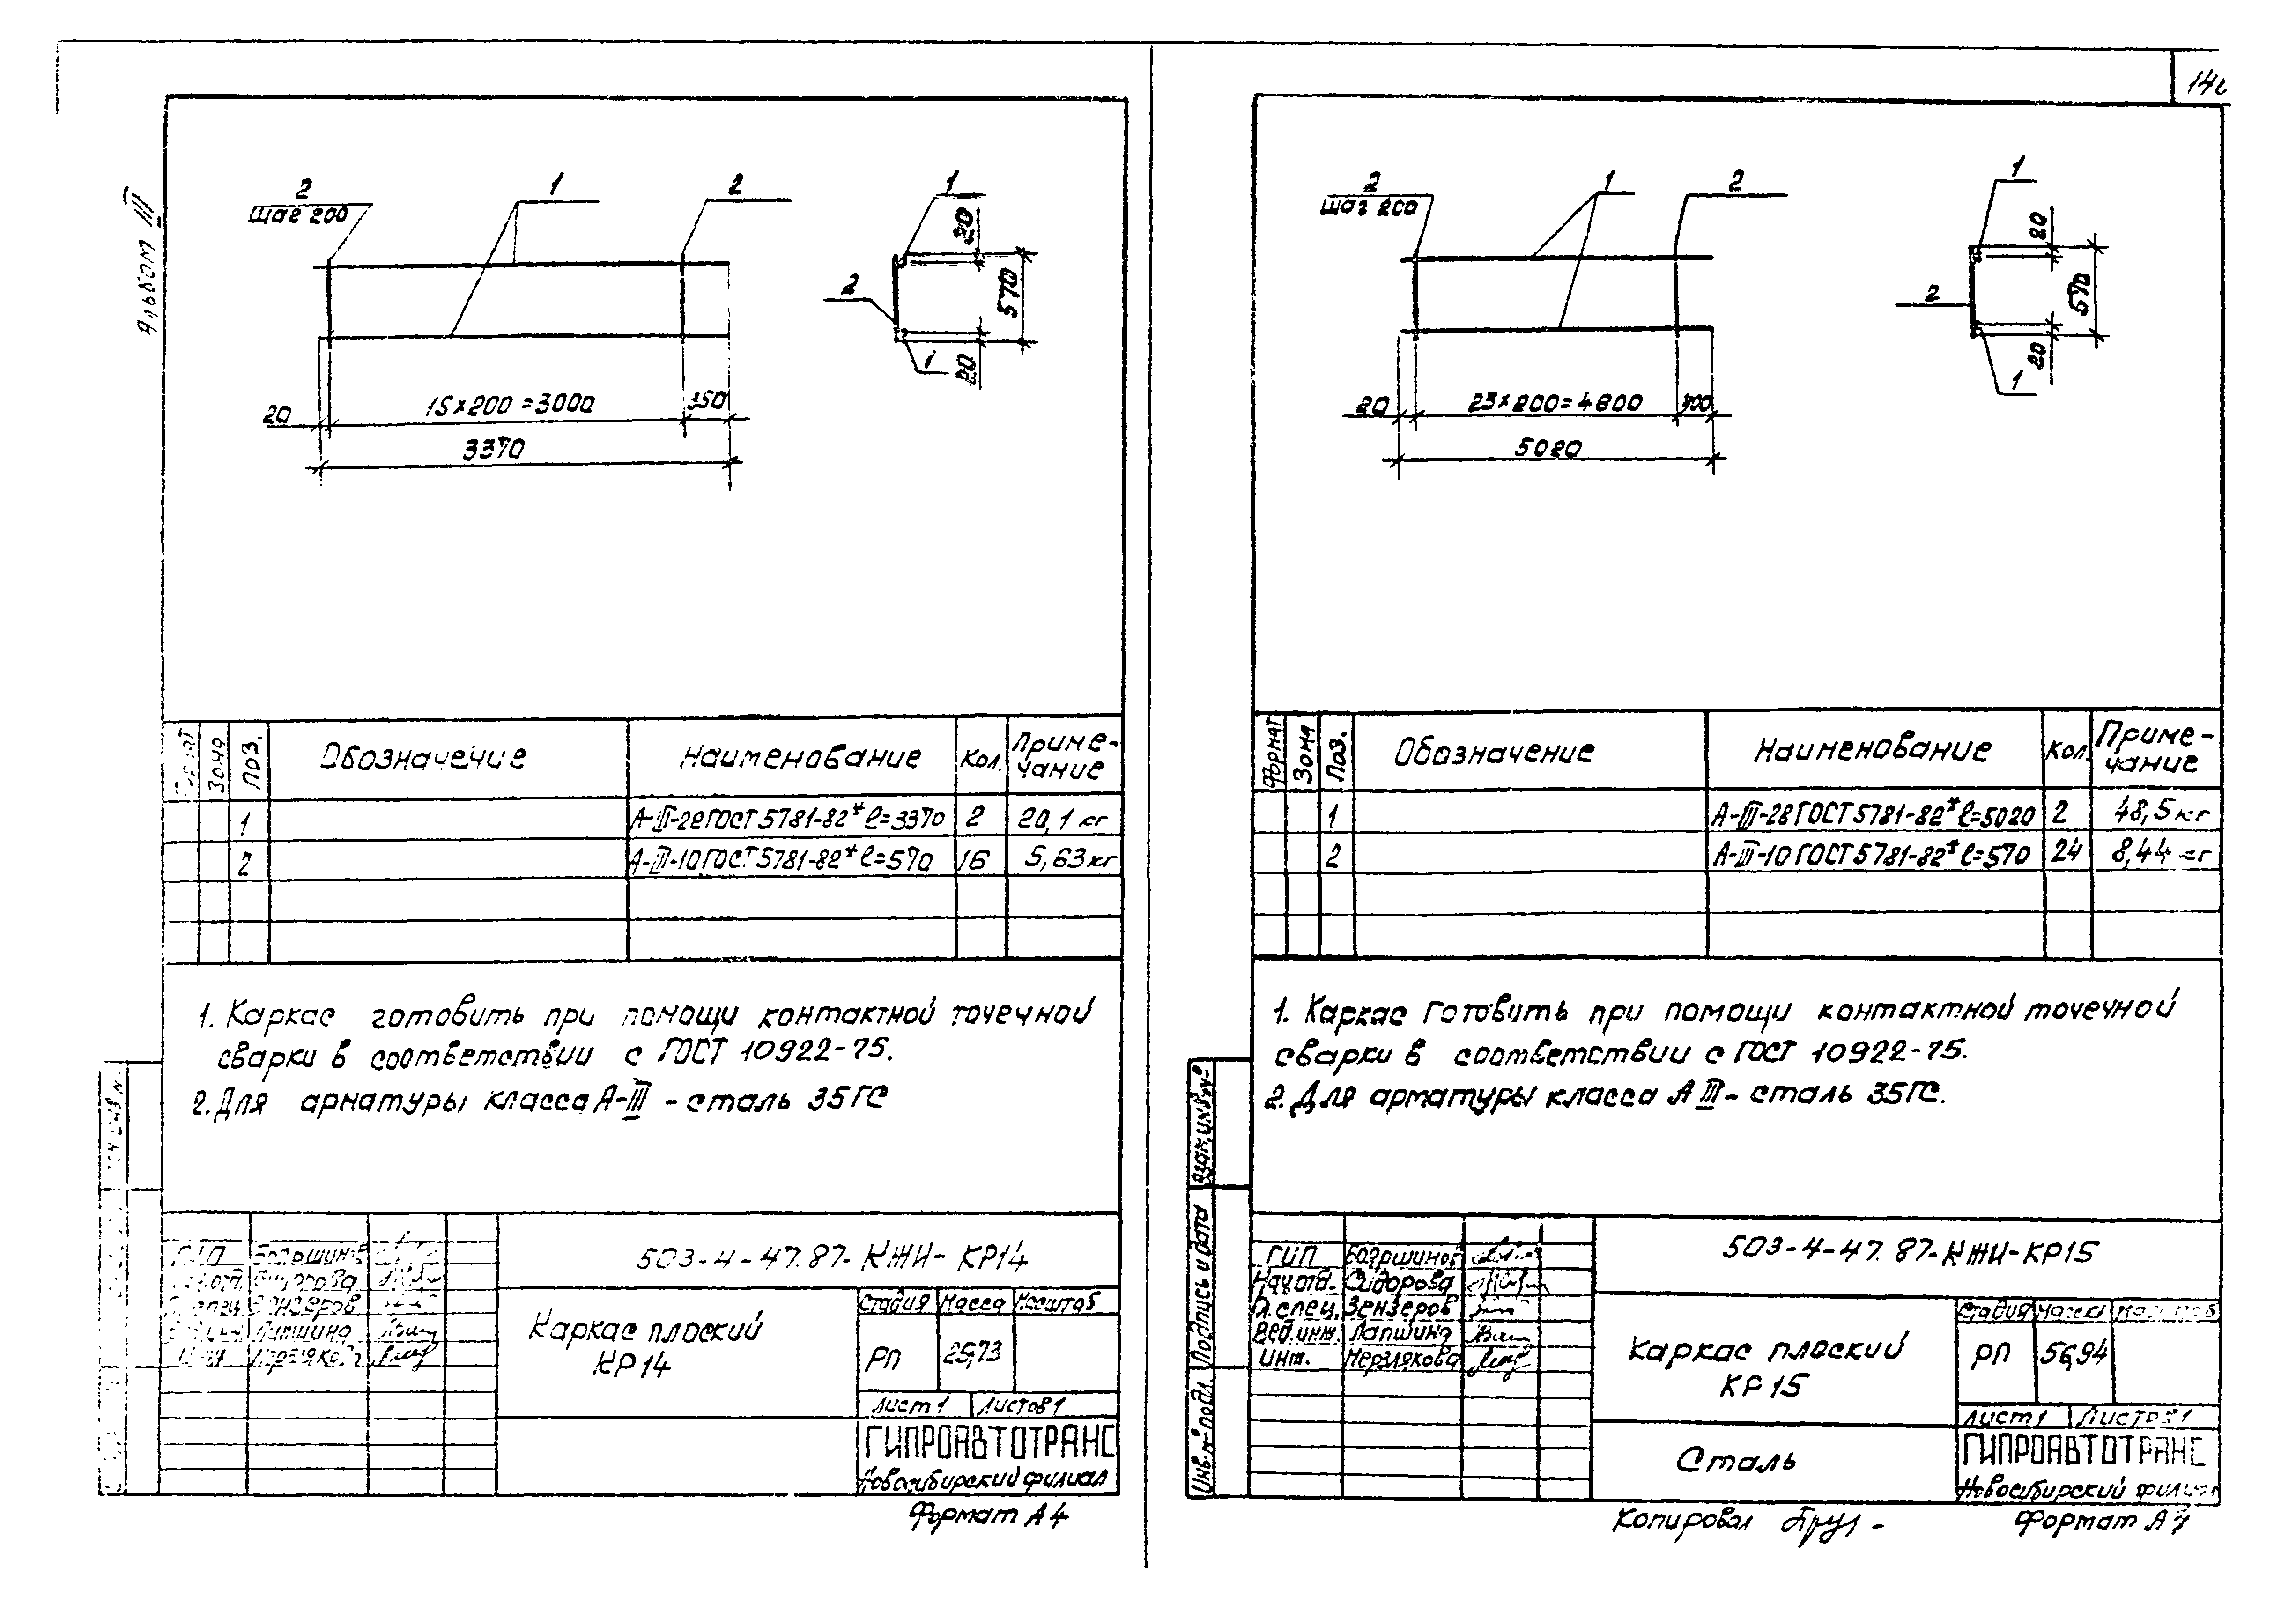 Альбом III
2
шаг 200
1
2
1
20
570
2
1
20
20
15×200=3000
350
3370
Зона
Поз.
Обозначение
Наименование
Кол.
Приме-
чание
1
А-III-22 ГОСТ 5781-82* ℓ=3370
2
20,1 кг
2
А-III-10 ГОСТ 5781-82* ℓ=570
16
5,63 кг
1. Каркас готовить при помощи контактной точечной
сварки в соответствии с ГОСТ 10922-75.
2. Для арматуры класса А-III - сталь 35ГС
503-4-47.87-КЖИ-КР14
Каркас плоский
КР14
Стадия
Масса
Масштаб
РП
25,73
Лист 1
Листов 1
ГИПРОАВТОТРАНС
Новосибирский филиал
Формат А4
2
шаг 200
1
2
1
20
570
2
20
1
20
23×200=4600
400
5020
Формат
Зона
Поз.
Обозначение
Наименование
Кол.
Приме-
чание
1
А-III-28 ГОСТ 5781-82* ℓ=5020
2
48,5 кг
2
А-III-10 ГОСТ 5781-82* ℓ=570
24
8,44 кг
1. Каркас готовить при помощи контактной точечной
сварки в соответствии с ГОСТ 10922-75.
2. Для арматуры класса А III - сталь 35ГС.
Взам. инв. №
Подпись и дата
Инв. № подл.
ГИП
Нач.отд. Сидорова
Гл.спец. Зензеров
Вед.инж. Лапшина
Инж. Мерзлякова
503-4-47.87-КЖИ-КР15
Каркас плоский
КР15
Стадия
Масса
Масштаб
РП
56,94
Лист 1
Листов 1
Сталь
ГИПРОАВТОТРАНС
Новосибирский филиал
Копировал
Формат А4